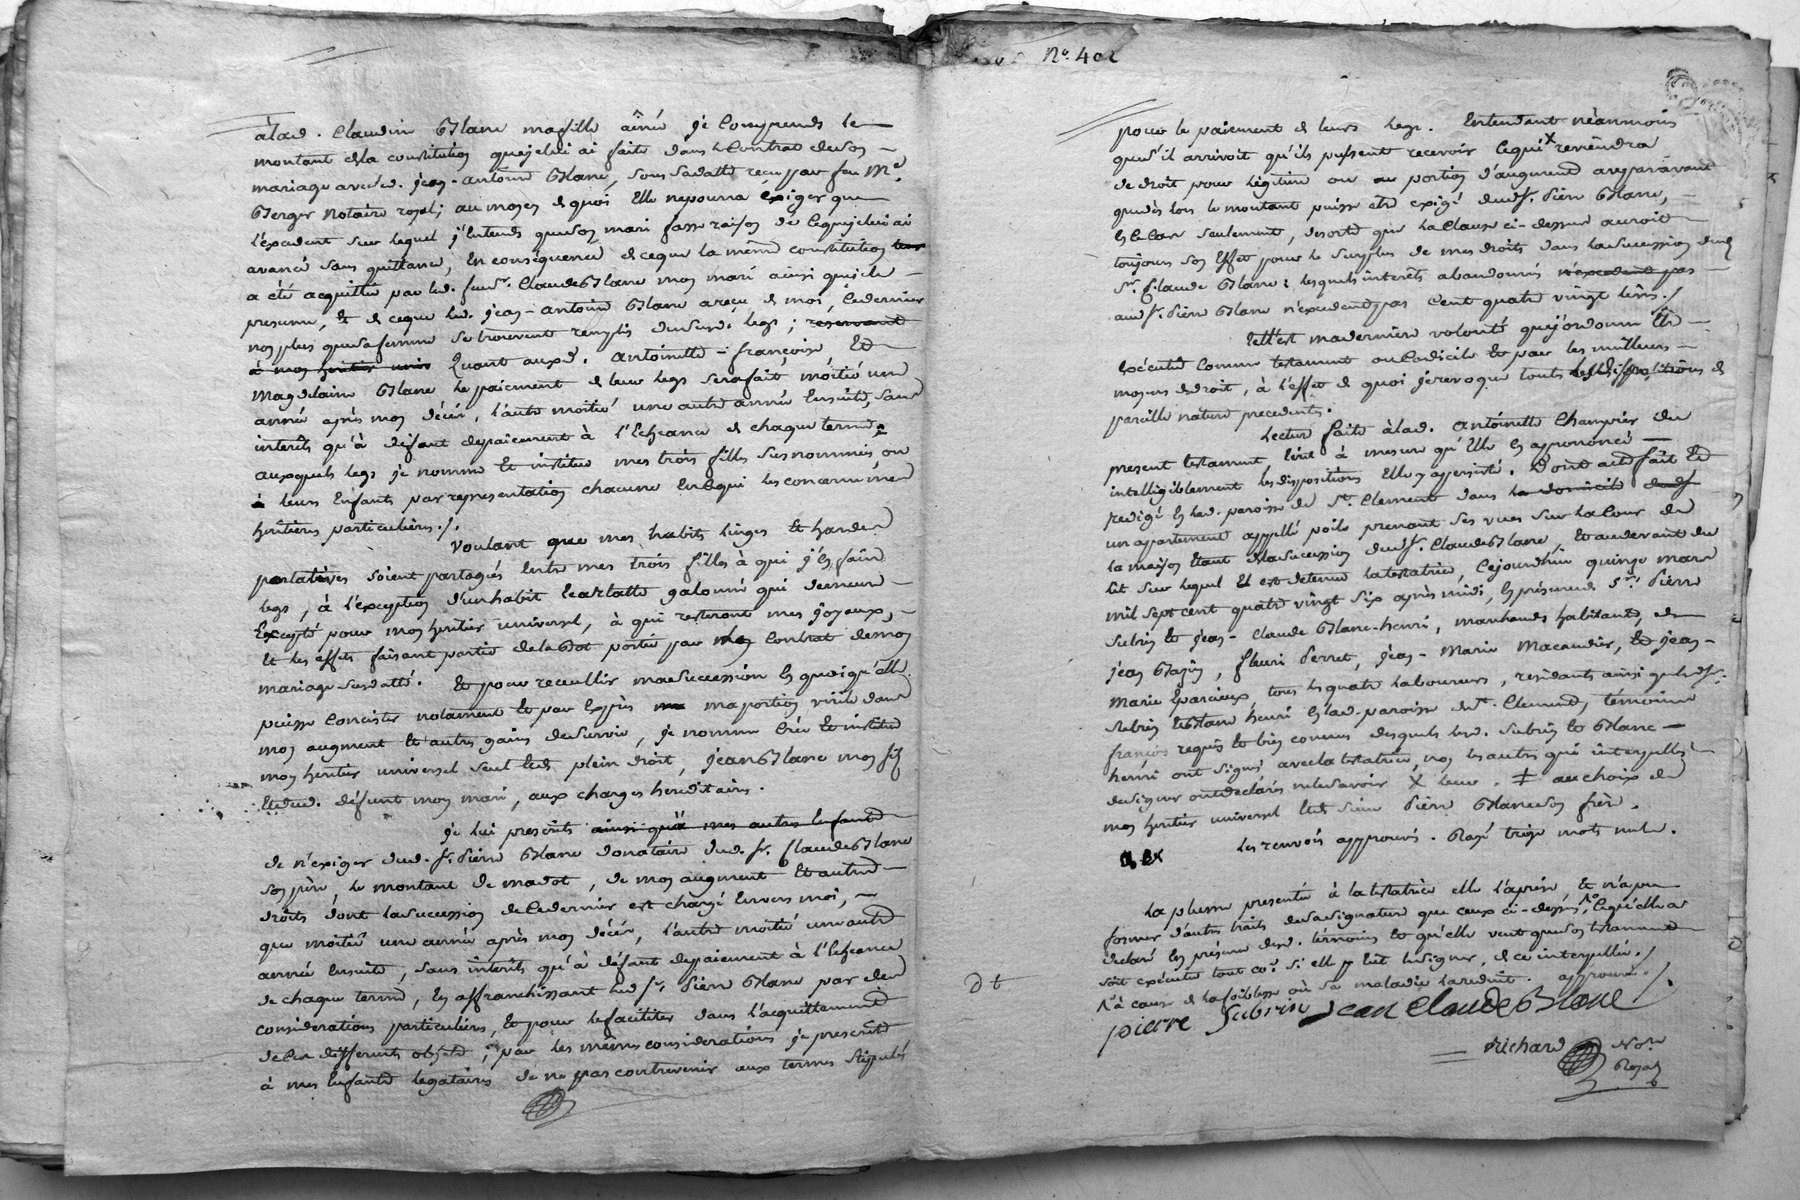 àlad. Claudine Blanc mafille aînée je Comprends le
montant dela constitution quejelui ai faite dans le Contrat deson
mariage avec d. jean-antoine Blanc, sous sadatte reçu par feu Me.
Berger Notaire royal; au moyen de quoi Elle nepourra éxiger que
l'éxcedent sur lequel j'Entends queson mari fasse raison de cequejeluiai
avancé sans quittance, En conséquence de ceque la même constitution
a été acquittée par led. feu sr. Claude Blanc mon mari ainsi queje le
presume, Et de ceque led. jean-antoine Blanc a reçu de moi, Cedernier
non plus quesa femme se trouvent remplis dudit legs; réservant
à mon héritier Quant aux d. antoinette-françoise Et
Magdelaine Blanc le paiement de leur legs serafait moitié une
année après mon décés, l'autre moitié une autre année Ensuite, sans
interêts qu'à défaut depaiement à l'Echeance de chaque terme
auxquels legs je nomme Et institue mes trois filles susnommées ou
à leurs Enfants par representation chacune En cequi les concerne mes
héritières particulieres./.
Voulant que mes habits linges Et hardes
portatives soient partagés Entre mes trois filles à qui j'En fais
legs, à l'exception d'un habit Ecarlatte galonné qui demeure
Excepté pour mon héritier universel, à qui resteront mes joyaux,
Et les effets faisant partie dela dot portée par Contrat demon
mariage susdatté. Et pour recuellir masuccession En quoiqu'elle
puisse Concister notament Et par Exprès ma portion virile dans
mon augment Et autres gains desurvie, je nomme Crée Et institue
mon héritier universel seul Et de plein droit, jean Blanc mon fils
Et dud. défunt mon mari, aux charges hereditaires.
je lui prescrits ainsi qu'à mes autres Enfants
de n'exiger dud. sr. Pierre Blanc donataire dud. sr. Claude Blanc
son père, le montant de madot, de mon augment Et autres
droits dont lasuccession de Cedernier est chargé Envers moi,
que moitié une année après mon décés, l'autre moitié une autre
année Ensuite, sans interêts qu'à défaut depaiement à l'Echeance
de chaque terme, En affranchissant led. sr. Pierre Blanc par des
considerations particulieres, Et pour lefaciliter dans l'acquittement
de Ces differents objets; par les mêmes considerations je prescrits
à mes Enfants legataires de ne pas contrevenir aux termes stipulés
No. 402
pour le paiement de leurs legs. Entendant néanmoins
ques'il arrivoit qu'ils pussent recevoir Cequi x reviendra
de droit pour légitime ou portion d'augment auparavant
quedès lors le montant puisse être exigé dud. sr. Pierre Blanc,
En Ce Cas seulement, desorte que la Clause ci-dessus auroit
toujours son Effet pour le surplus de mes droits dans lasuccession dud.
sr. Claude Blanc; lesquels interêts abandonnés n'excedent pas
aud. sr. Pierre Blanc n'excedent pas Cent quatre vingt livres./
Telle est maderniere volonté quej'ordonne Etre
Exécutée Comme testament ou Codicile Et par les meilleurs
moyens de droit, à l'effet de quoi jerevoque toutes dispositions de
pareille nature precedentes.
Lecture faite àlad. antoinette Champier du
present testament Ecrit à mesure qu'Elle En aprononcé
intelligiblement les dispositions Elle y apersisté. Dont acte fait Et
redigé En lad. paroisse de St. Clement dans le domicile dud. sr.
un appartement appellé poile prenant ses vues sur la Cour de
la maison Etant dela succession dud. sr. Claude Blanc, Et audevant du
lit sur lequel Est detenue latestatrice, Cejourdhui quinze mars
mil sept cent quatre vingt six après midi, En présence des srs. Pierre
Subrin Et jean-Claude Blanc-henri, marchands habitants, de
jean Bazin, fleuri Perret, jean-Marie Macaudier, Et jean-
Marie Eparcieux tous les quatre laboureurs, residants ainsi que les srs.
Subrin Et Blanc henri En lad. paroisse de St. Clement, témoins
françois requis Et bien connus desquels les d. Subrin Et Blanc
henri ont signé avec la testatrice, non les autres qui interpellés
designer ontdeclarés nelesavoir X leur. ‡ au choix de
mon héritier universel Et sieur Pierre Blanc son frère.
Les renvois approuvés. Rayé treize mots nuls.
La plume presentée à la testatrice elle l'aprise Et n'a pu
former d'autres traits desasignature que ceux ci-dessus, Ce qu'elle a
declaré En présence desd. témoins Et qu'elle veut queson testament
soit exécuté tout comme si elle y Eût signé, de ce interpellée./
à cause de la foiblesse où sa maladie la reduit. approuvé./.
pierre Subrin Jean Claude Blanc
Richard Nore
Royal
dt